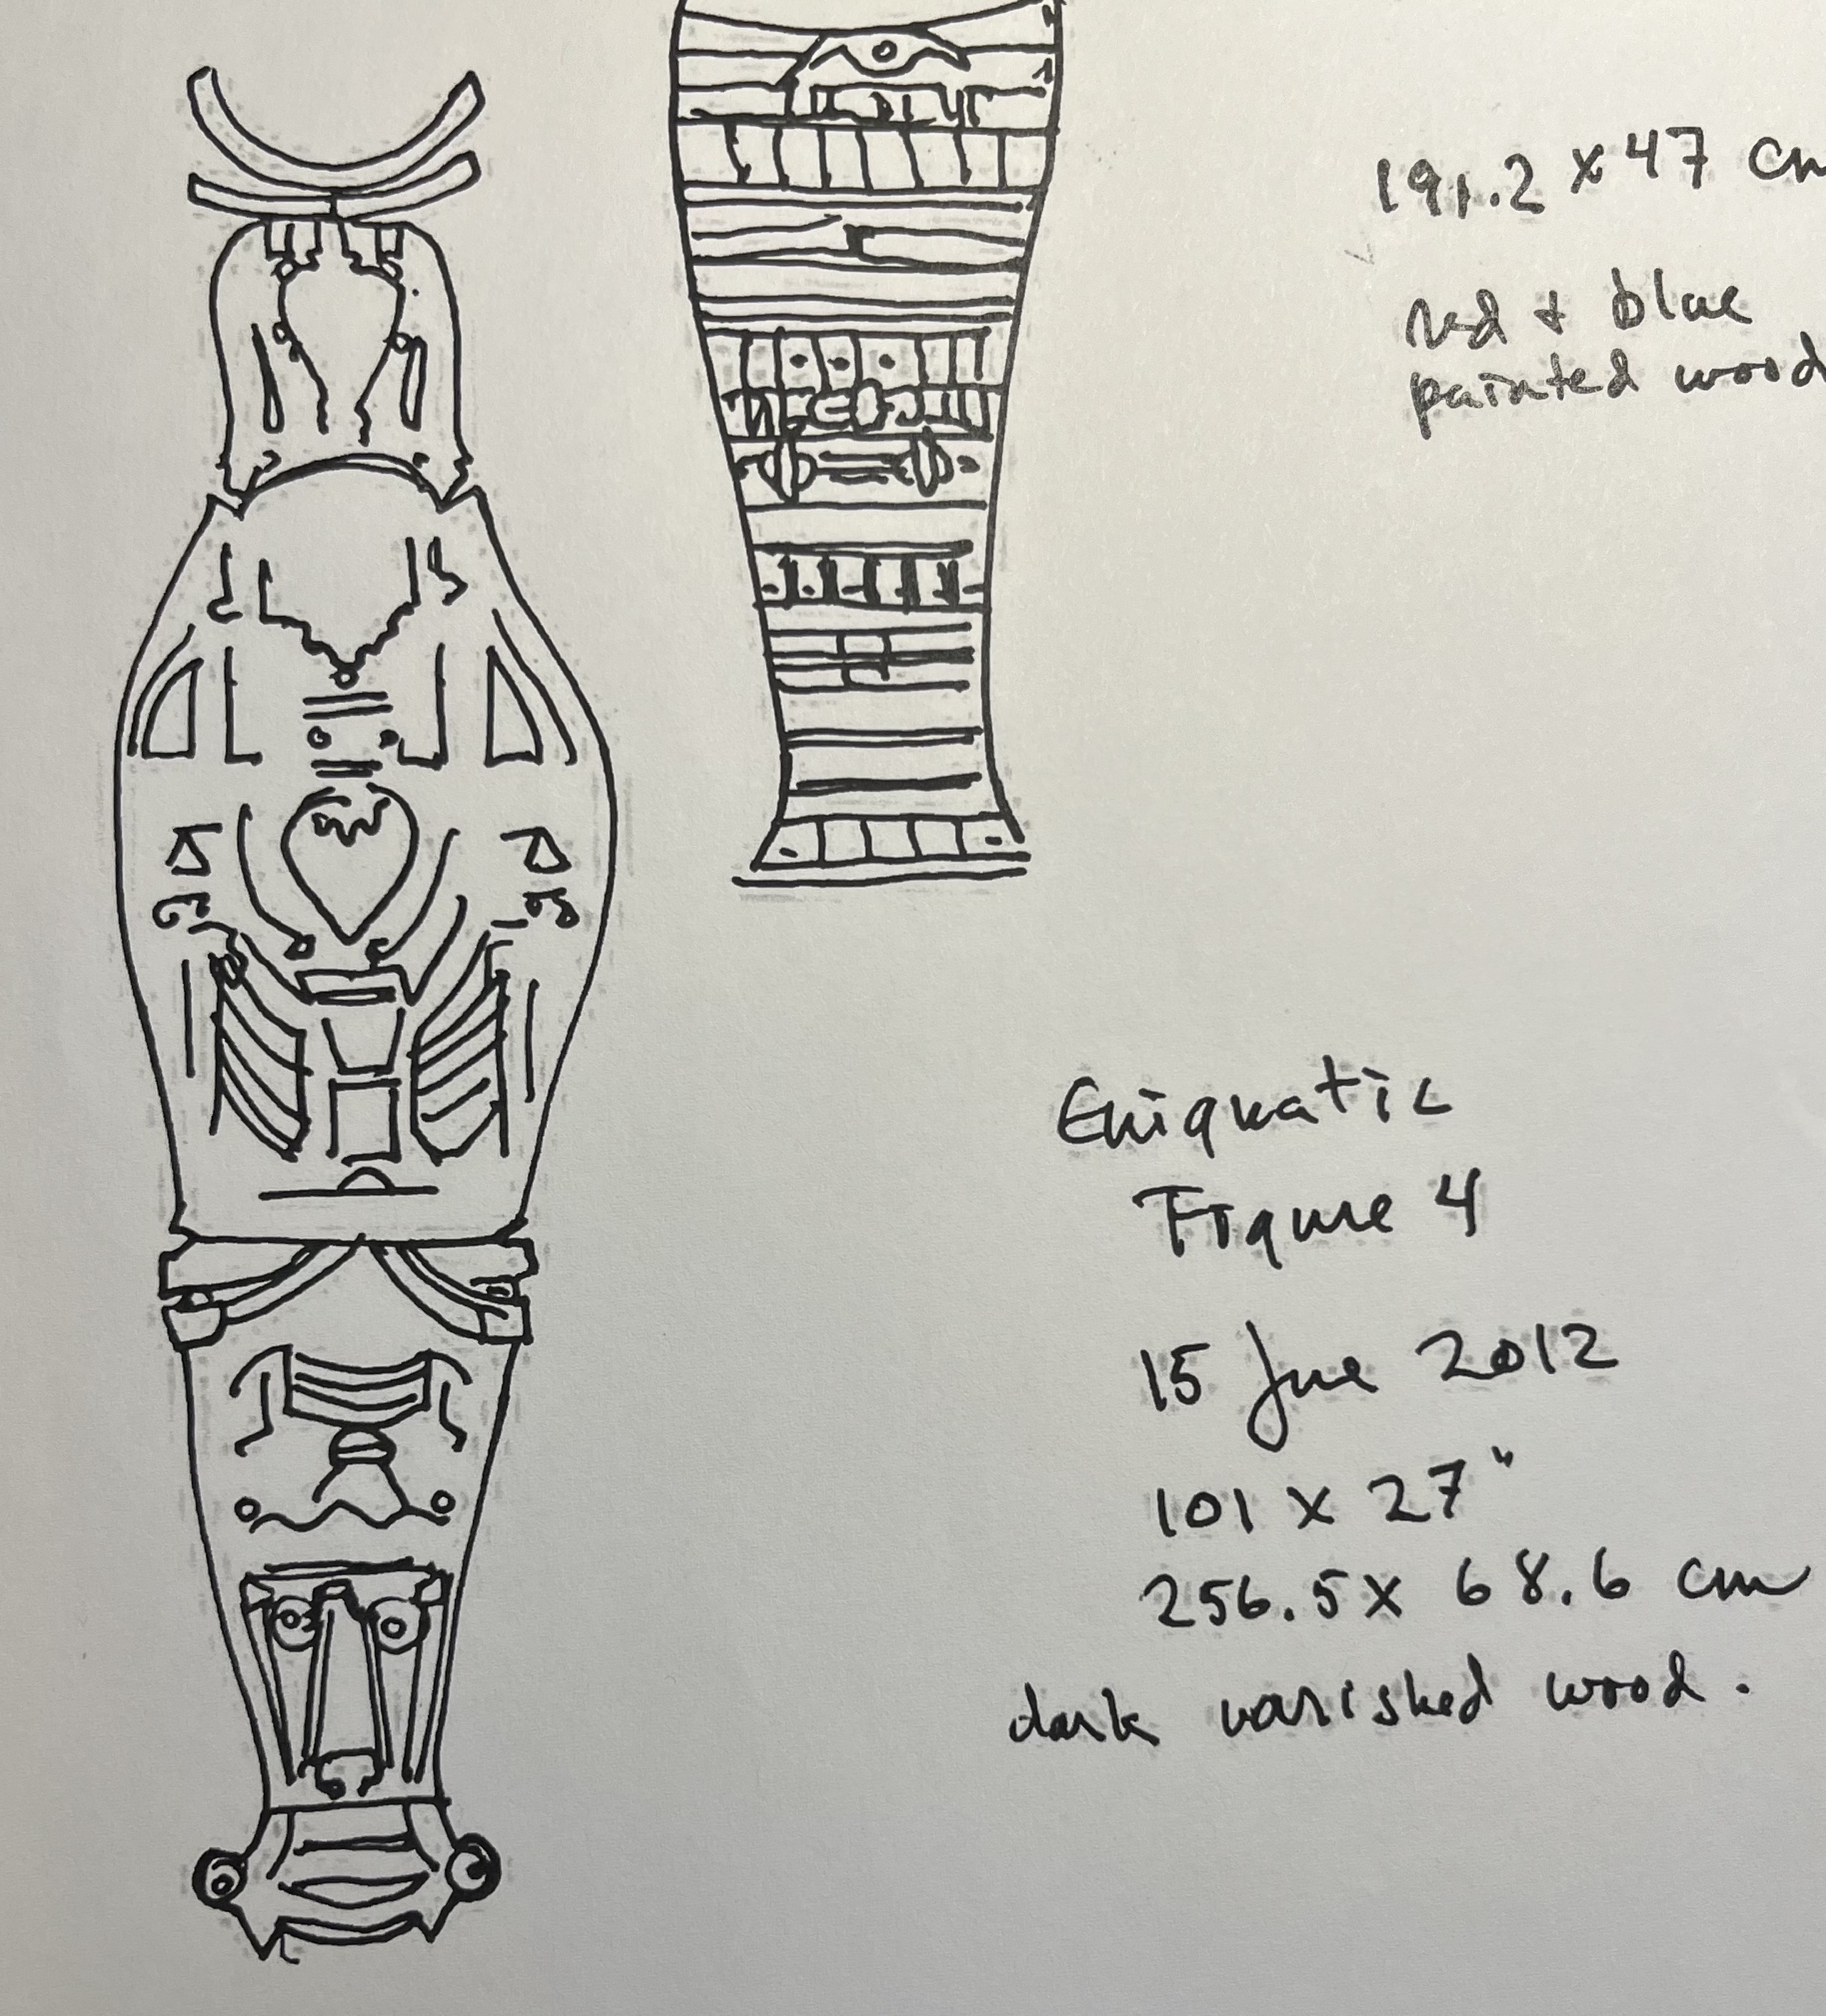 191.2 x 47 cm
red + blue
painted wood
Enigmatic
Figure 4
15 June 2012
101 x 27"
256.5 x 68.6 cm
dark varished wood.